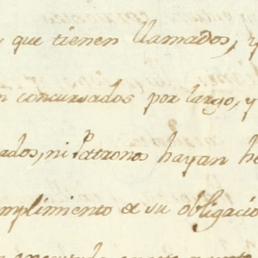 que tienen llamados, y
concursados por largo, y
ados, ni Patronos hayan he
mplimiento de su obligacio